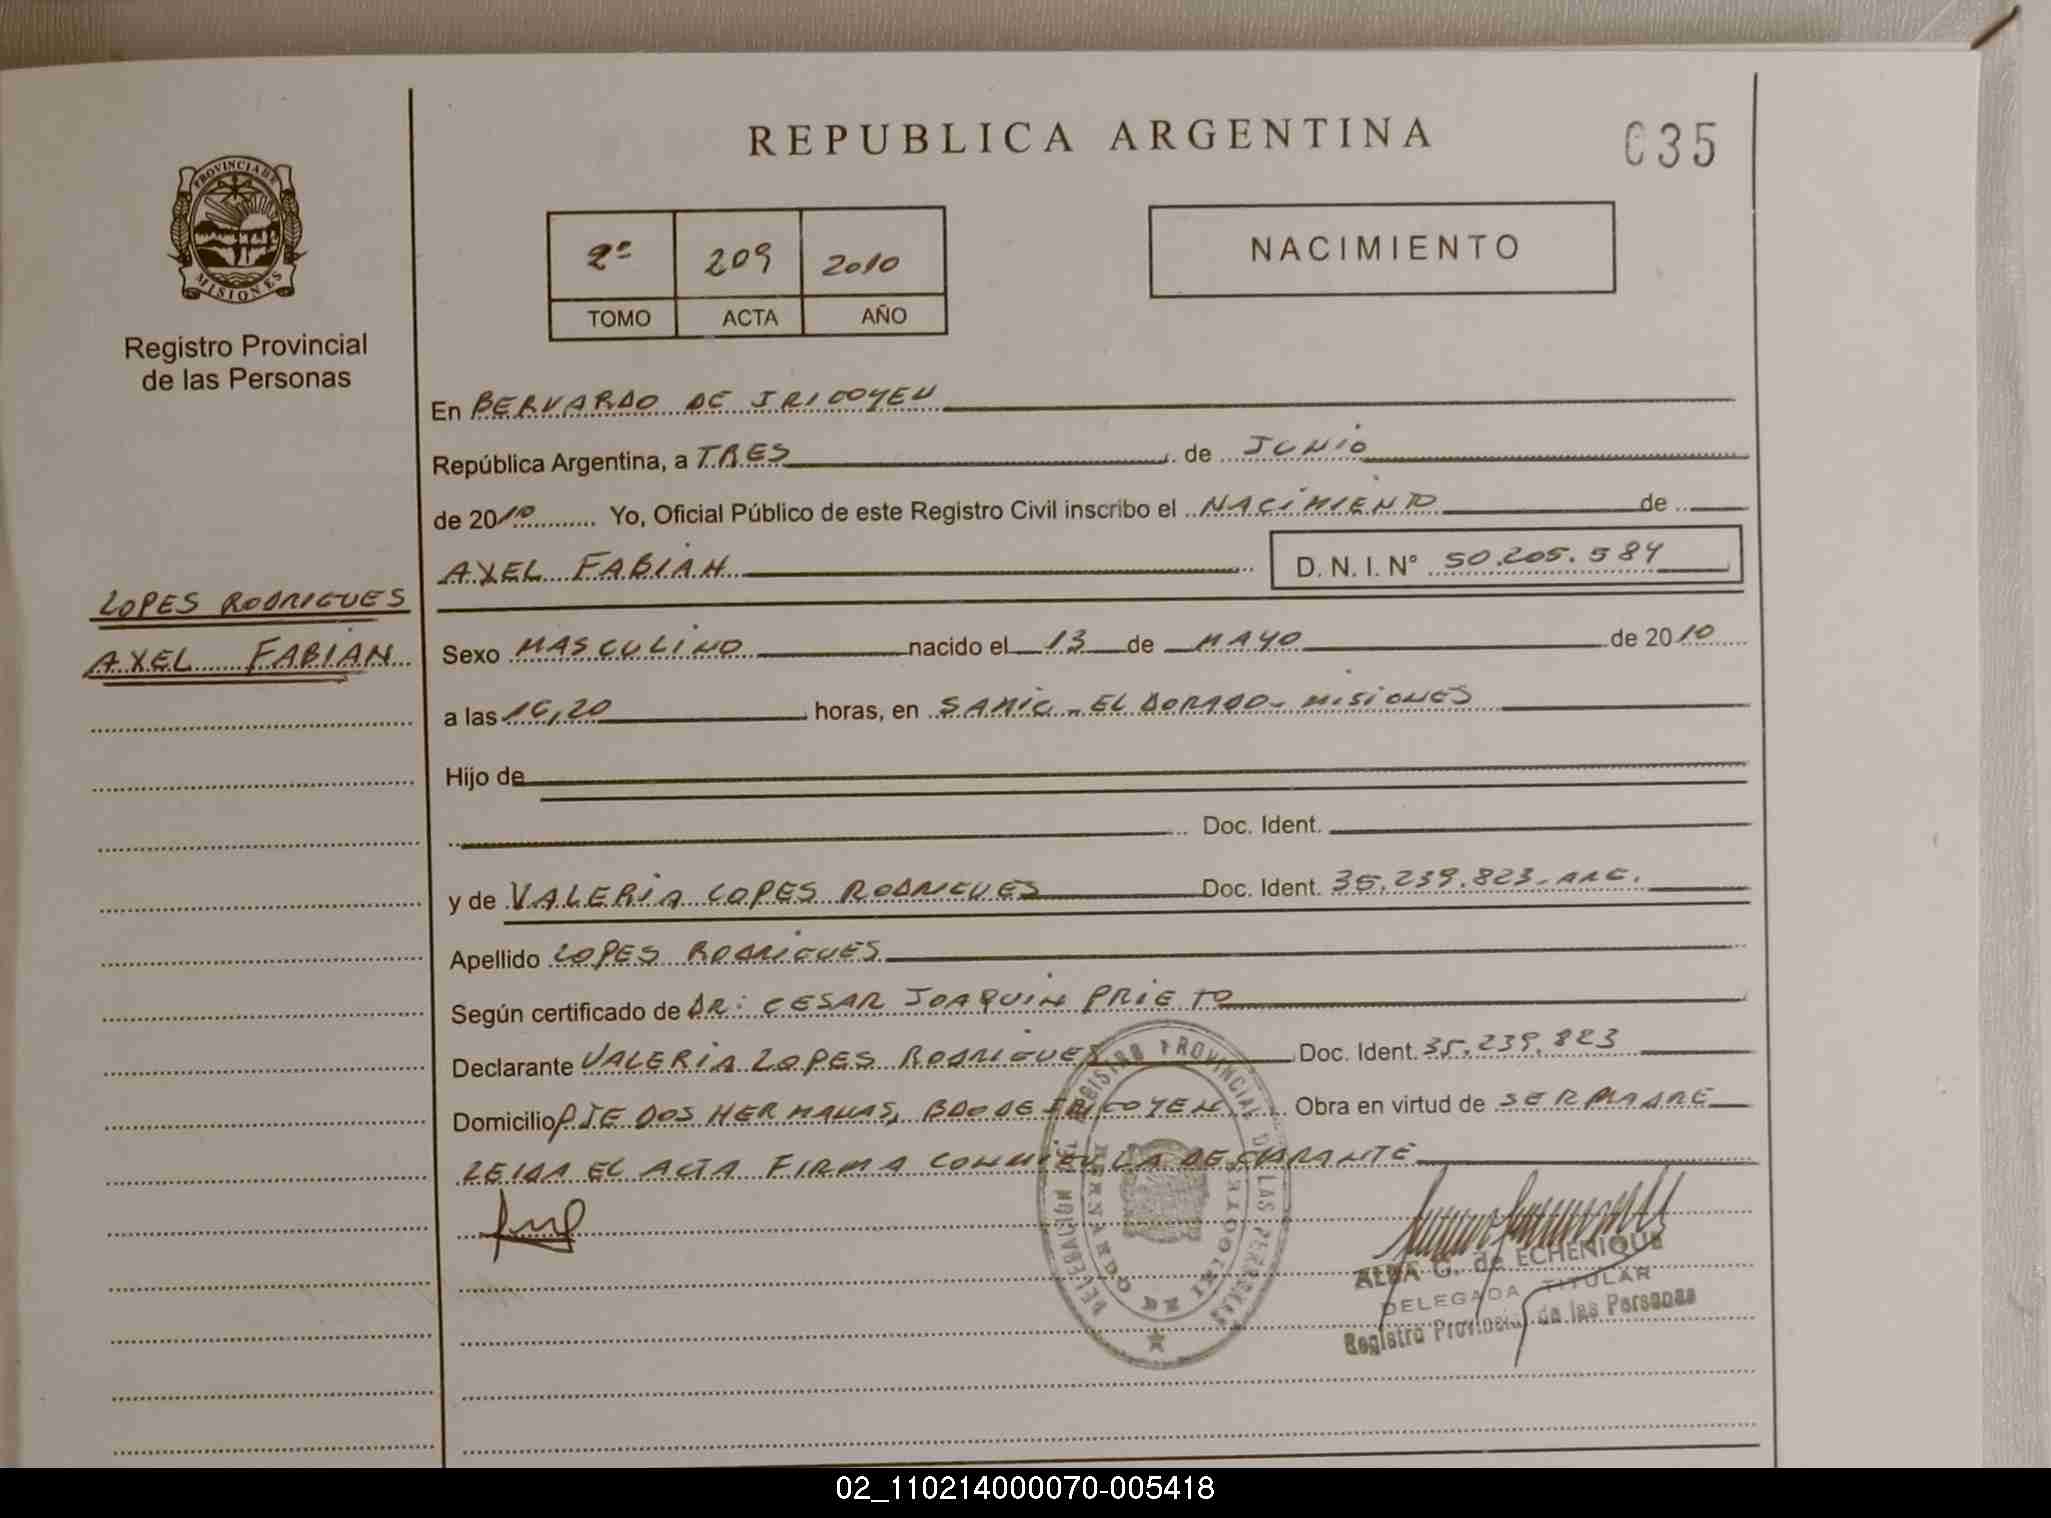 REPUBLICA ARGENTINA
035
PROVINCIA DE
MISIONES
Registro Provincial
de las Personas
2º 209 2010
TOMO ACTA AÑO
NACIMIENTO
En BERNARDO DE IRIGOYEN
República Argentina, a TRES de JUNIO
de 2010 Yo, Oficial Público de este Registro Civil inscribo el NACIMIENTO de
AXEL FABIÁN D. N. I. Nº 50.205.584
LOPES RODRIGUES
AXEL FABIAN
Sexo MASCULINO nacido el 13 de MAYO de 2010
a las 16,20 horas, en SAMIC - ELDORADO - MISIONES
Hijo de
Doc. Ident.
y de VALERIA LOPES RODRIGUES Doc. Ident. 35.239.823-ARG.
Apellido LOPES RODRIGUES
Según certificado de DR: CESAR JOAQUIN PRIETO
Declarante VALERIA LOPES RODRIGUES Doc. Ident. 35.239.823
Domicilio PJE DOS HERMANAS, BDO DE IRIGOYEN Obra en virtud de SER MADRE
LEIDA EL ACTA FIRMA CONMIGO LA DECLARANTE
REGISTRO PROVINCIAL DE LAS PERSONAS
BERNARDO DE IRIGOYEN
ALBA G. de ECHENIQUE
DELEGADA TITULAR
Registro Provincial de las Personas
02_110214000070-005418